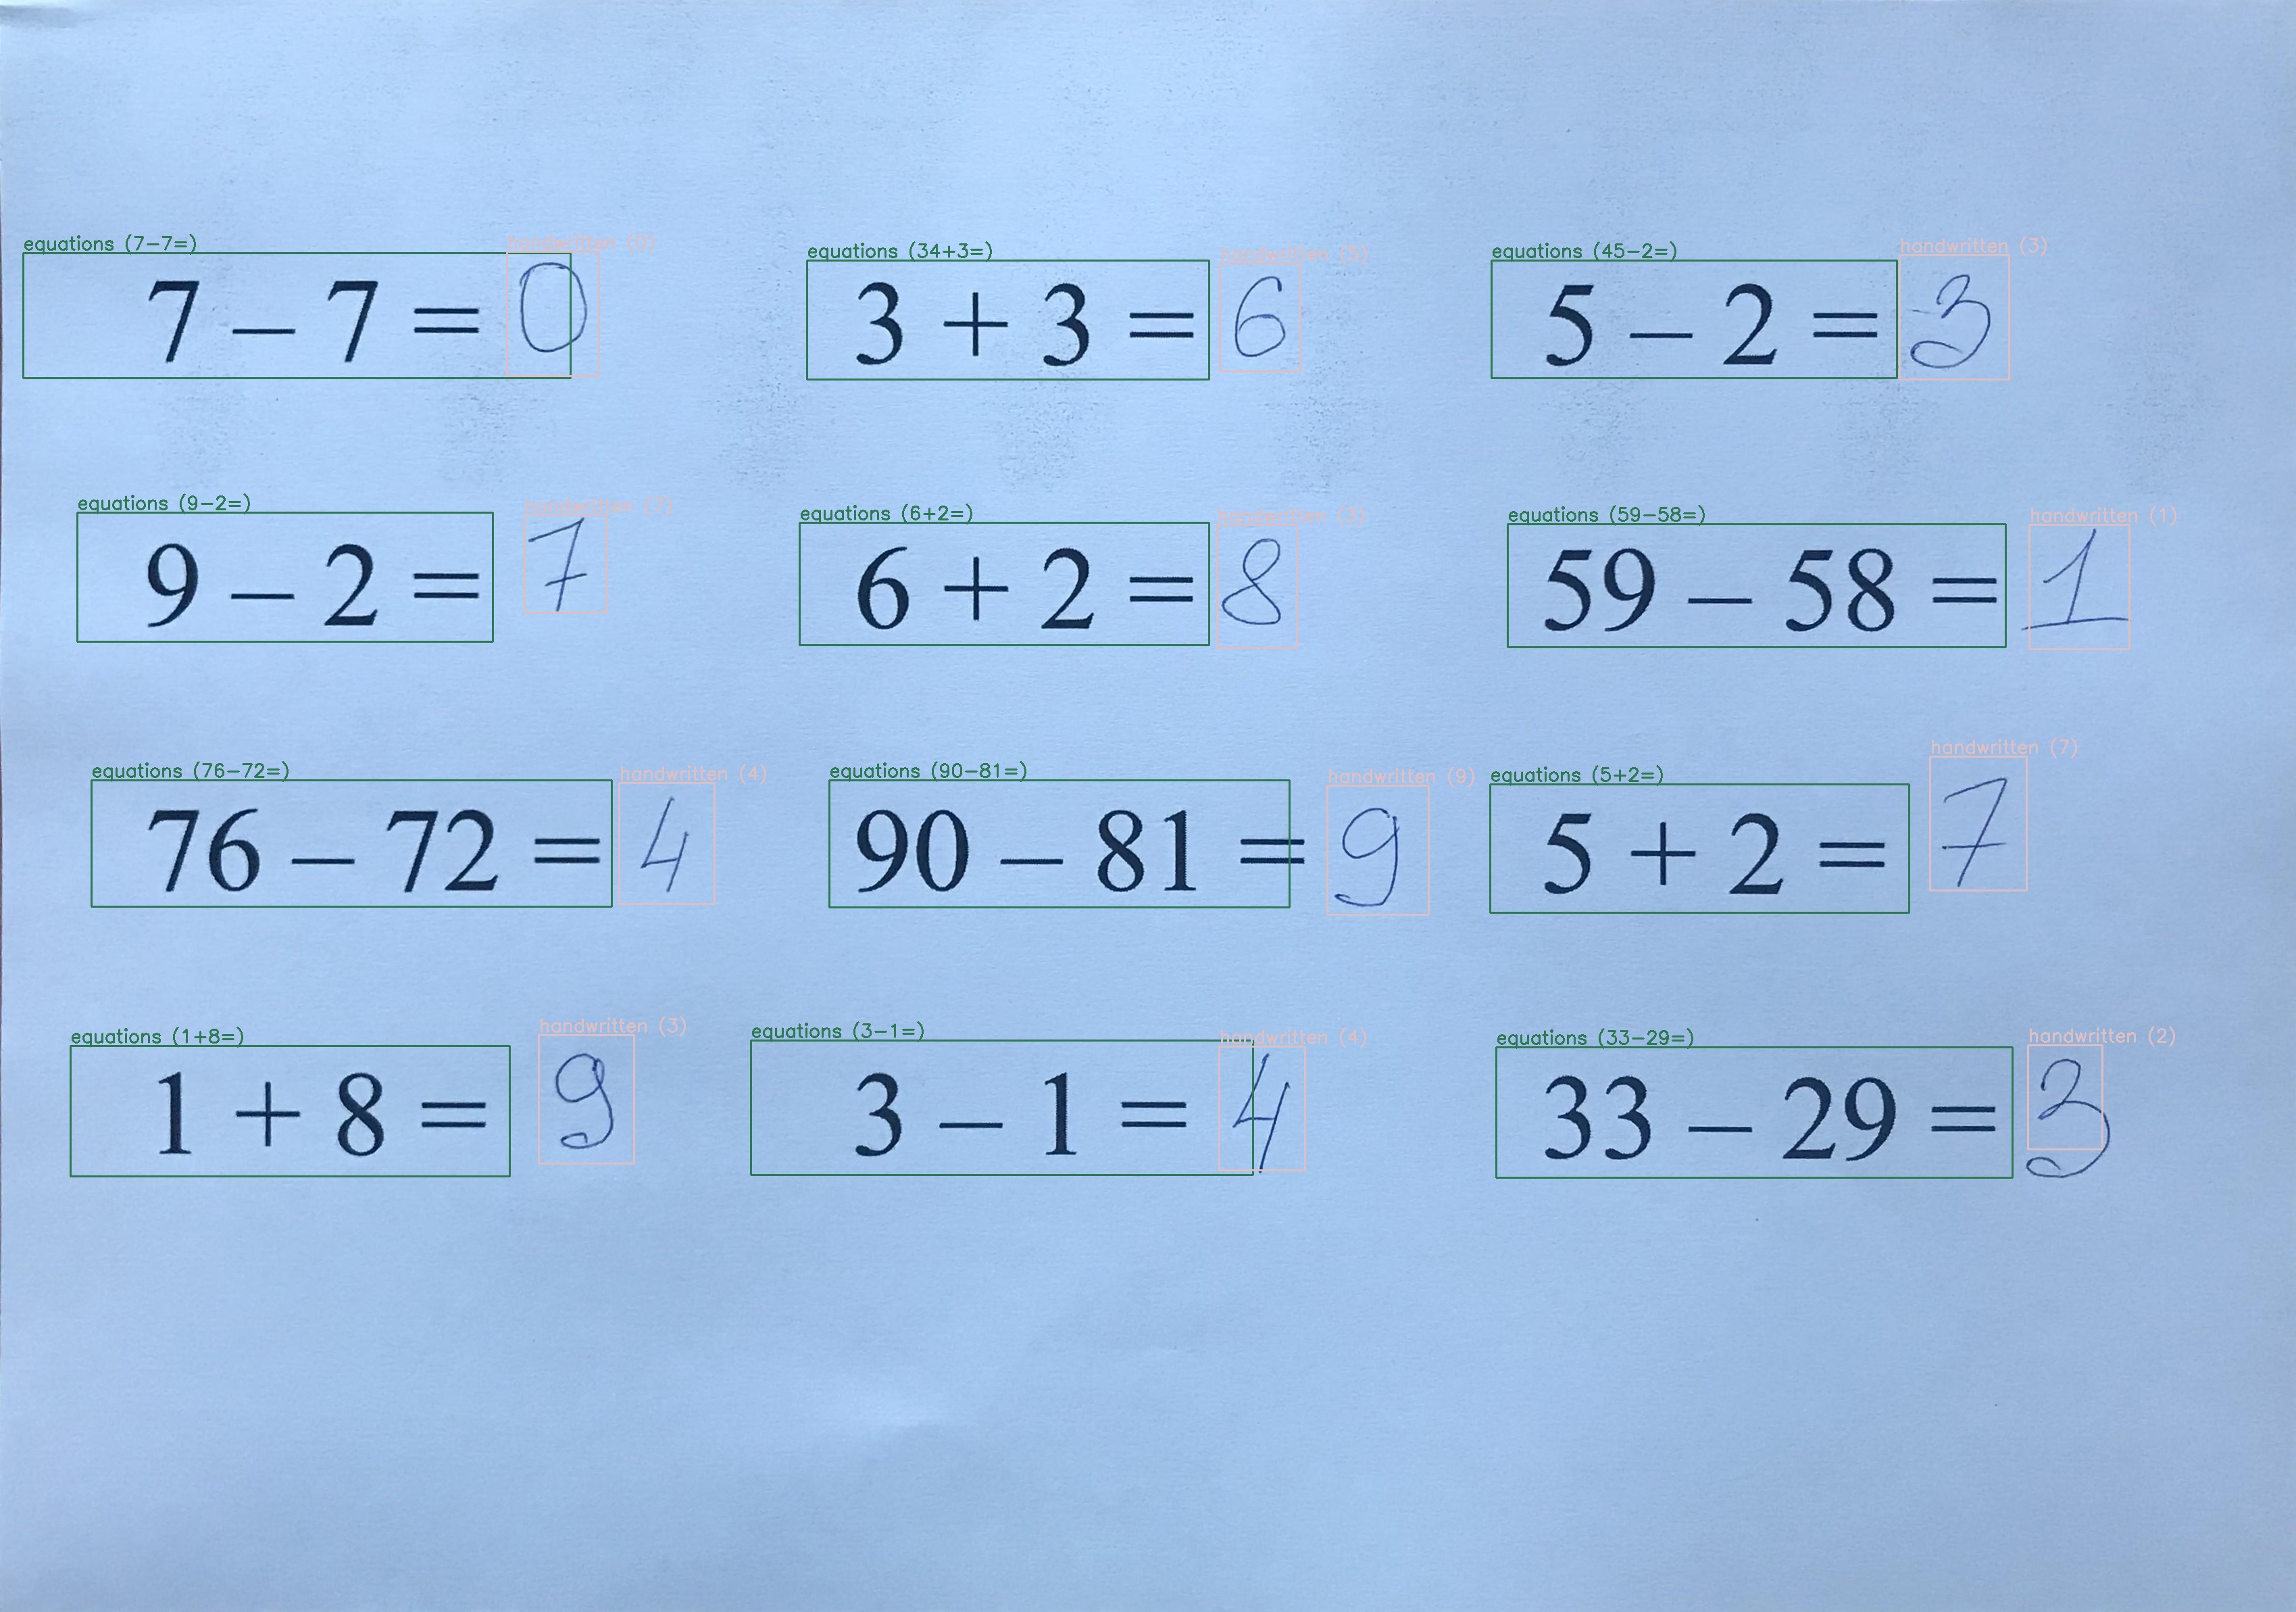 equations (7-7=) handwritten (0) equations (34+3=) handwritten (5) equations (45-2=) handwritten (3)
7 – 7 = 0 3 + 3 = 6 5 – 2 = 3
equations (9-2=) handwritten (7) equations (6+2=) handwritten (3) equations (59-58=) handwritten (1)
9 – 2 = 7 6 + 2 = 8 59 – 58 = 1
equations (76-72=) handwritten (4) equations (90-81=) handwritten (9) equations (5+2=) handwritten (7)
76 – 72 = 4 90 – 81 = 9 5 + 2 = 7
equations (1+8=) handwritten (3) equations (3-1=) handwritten (4) equations (33-29=) handwritten (2)
1 + 8 = 9 3 – 1 = 4 33 – 29 = 3